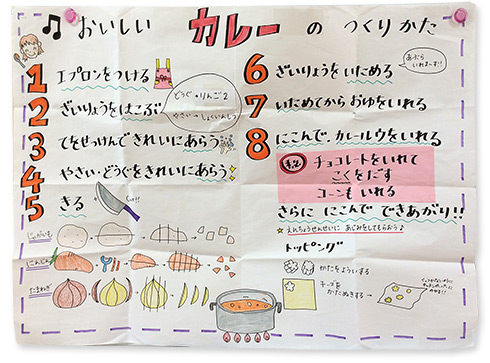 おいしい カレー の つくりかた
1 エプロンをつける
2 ざいりょうをはこぶ
どうぐ・りんご2
やさい→しょくいんしつ
3 てをせっけんできれいにあらう
4 やさい・どうぐをきれいにあらう
5 きる
じゃがいも
にんじん
たまねぎ
6 ざいりょうをいためる
あぶら
いれまーす!!
7 いためてから おゆをいれる
8 にこんで、カレールウをいれる
チョコレートをいれて
こくをだす
コーンも いれる
さらに にこんで できあがり!!
☆えんちょうせんせいに あじみをしてもらおう♪
トッピング
かたをよういする
チーズを
かたぬきする